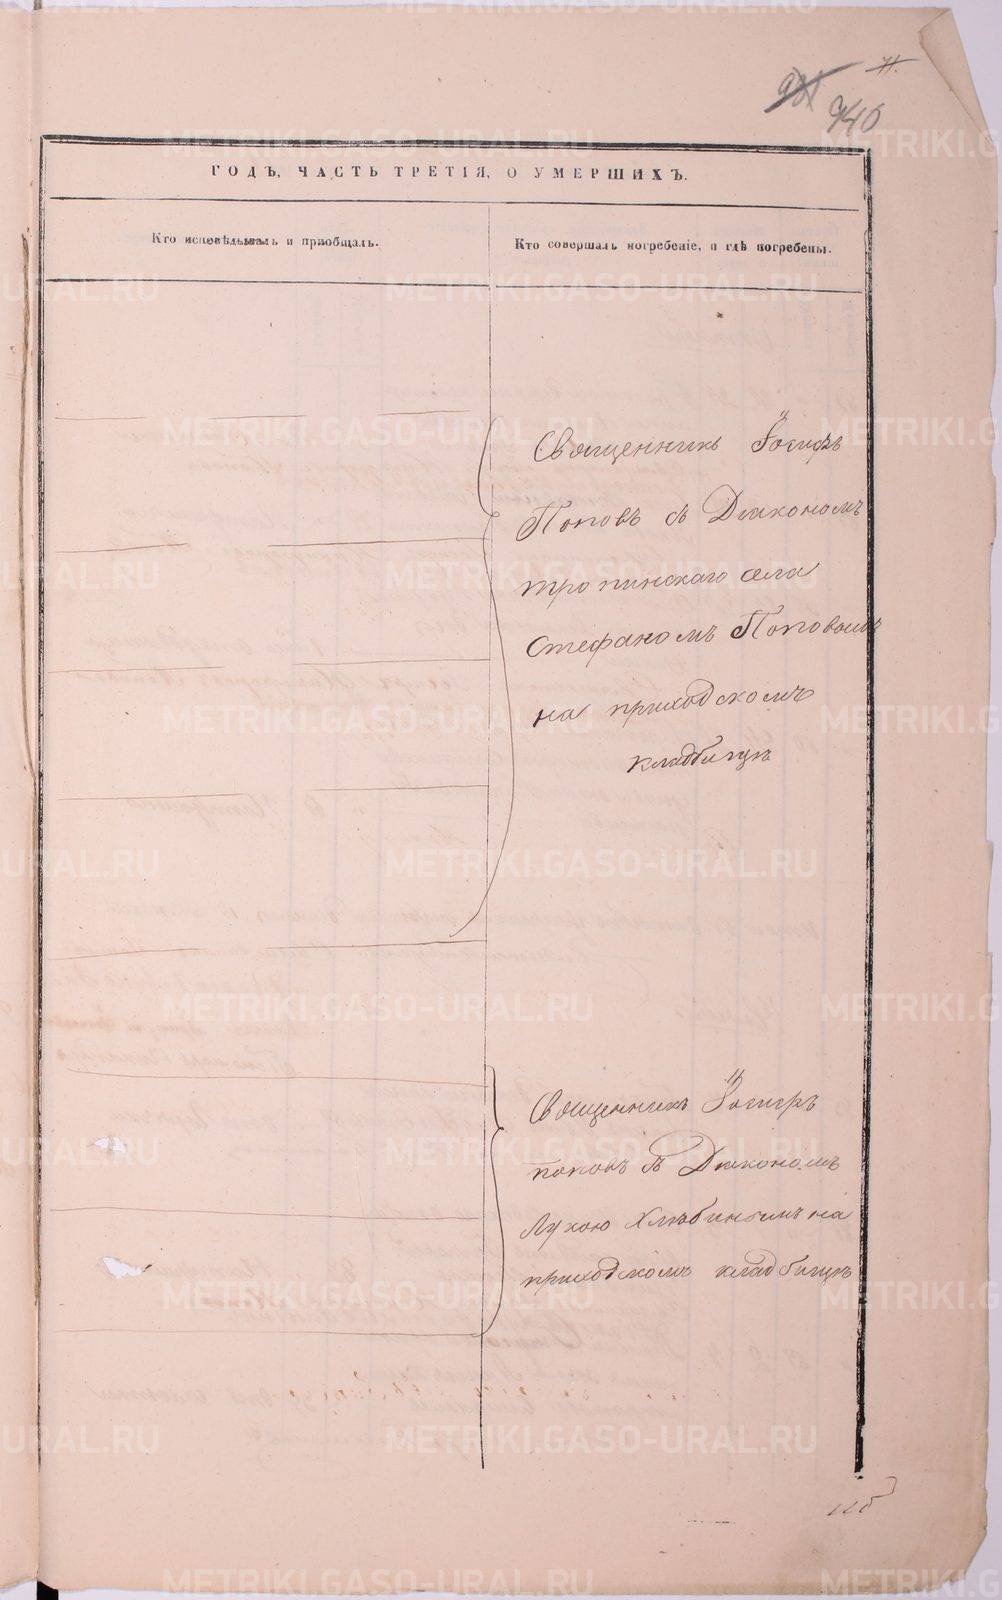 71.
931
940
ГОДЪ, ЧАСТЬ ТРЕТІЯ, О УМЕРШИХЪ.
Кто исповѣдывалъ и пріобщалъ.
Кто совершалъ погребеніе, и гдѣ погребены.
Священникъ Іосифъ
Поповъ съ Діакономъ
тропинскаго села
Стефаномъ Поповымъ
на приходскомъ
кладбищѣ
Священникъ Іосифъ
поповъ съ Діакономъ
Лукою Хлѣбинымъ на
приходскомъ кладбищѣ
METRIKI.GASO-URAL.RU